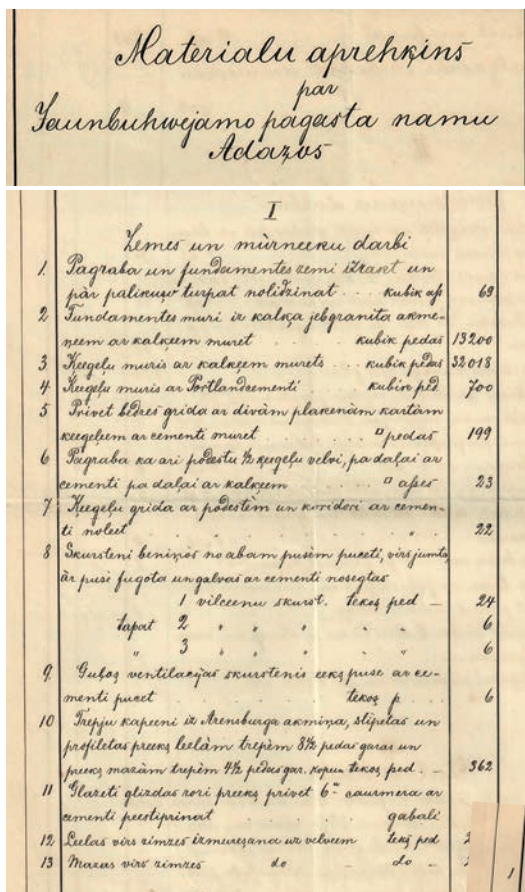 Materialu aprehķins
par
Jaunbuhwejamo pagasta namu
Adaƶos
I
Zemes un mūrneeku darbi
1. Pagraba un fundamentes zemi izrakt un
pār palikušo turpat nolidzinat . . . kubik aſs 69
2 Fundamentes muri iz kalķa jeb granita akme-
ņeem ar kalķeem muret . . . kubik pedas 13200
3 Ķeegeļu muris ar kalķeem murets . . . kubik pēdas 32018
4 Ķeegeļu muris ar Portlandcementi . kubik ped. 700
5 Privet bedres grida ar divām plakenām kartām
ķeegeļeem ar cementi muret . . . □ pedas 199
6 Pagraba ka ari podestu ½ ķeegeļu velvi, pa daļai ar
cementi pa daļai ar kalķeem . . . □ aſses 23
7 Ķeegeļu grida ar podestēm un koridori ar cemen-
ti noleet . . . " . 22
8 Skursteni beniņos no abam pusēm puceti, virs jumta,
ār pusē fugota un galvai ar cementi nosegtas
1 vilceenu skurst. tekoş ped — 24
tapat 2 " " " " " 6
" 3 " " " " " 6
9. Guļoş ventilacijas skurstenis eekş puse ar ce-
menti pucet . . . tekoş p . . . 6
10 Trepju kapeeni iz Arensburga akmiņa, stipetas un
profiletas preekş leelām trepēm 8½ pedas garas un
preekş mazām trepēm 4½ pedas gar. kopum tekoş ped. — 362
11 Glazeti glizdas rori preekş privet 6" caurmera ar
cementi peestiprinat . . . gabali
12 Leelas virs zimzes izmureşana uz velveem tekş ped 2
13 Mazas virs zimzes do — do —
1